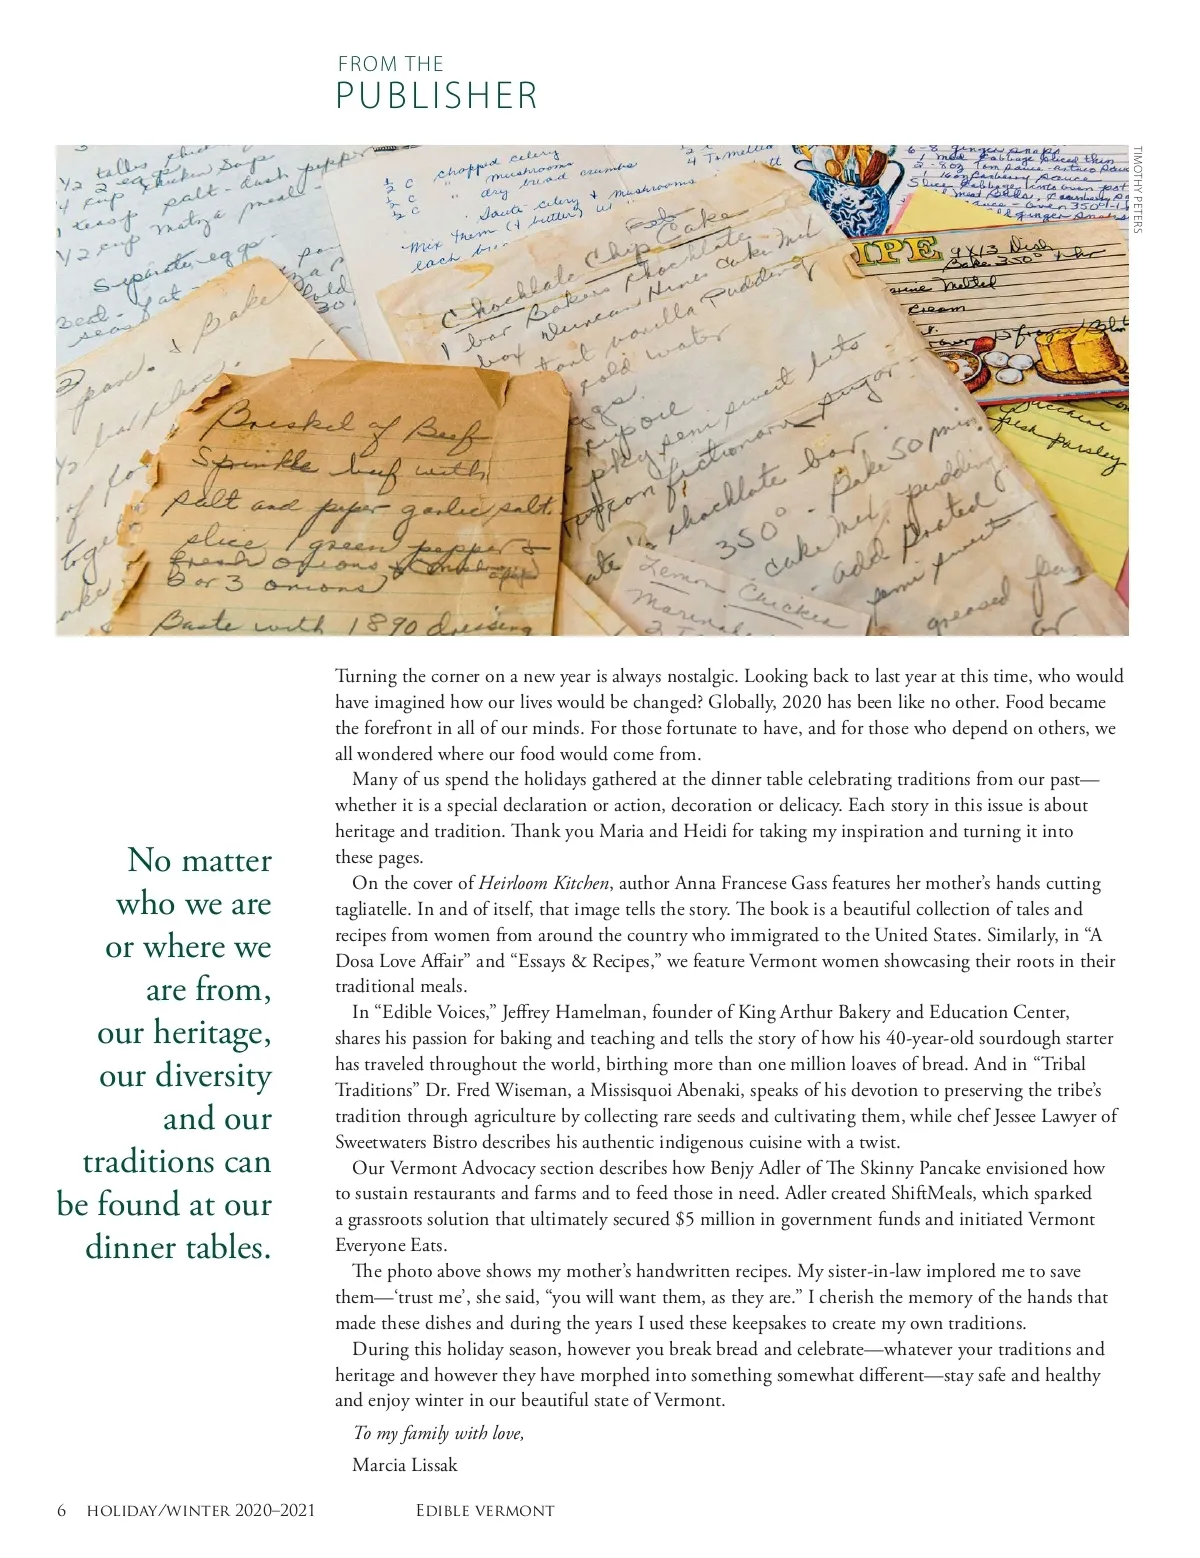 FROM THE
PUBLISHER
TIMOTHY PETERS
1/2 c chopped celery
mushrooms
dry bread crumbs
Saute celery & mushrooms
Mix them (+ butter)
each
1/2 cup matza meal
Separate eggs
Bake
Chocklate Chip Cake
1 bar Bakers Chocklate
1 box Duncan Hines Cake Mix
vanilla Pudding
cold water
semi sweet bits
confectionary sugar
chocklate bar
350° - Bake 50 min.
cake mix, pudding
add
semi sweet
greased pan
IPE
9x13 Dish
Bake 350° 1 hr
Melted
Cream
fresh parsley
Brisket of Beef
Sprinkle beef with
salt and peper garlic salt.
slice 1 green pepper &
fresh onions
2 or 3 onions
Baste with 1890 dressing
Lemon Chicken
Turning the corner on a new year is always nostalgic. Looking back to last year at this time, who would
have imagined how our lives would be changed? Globally, 2020 has been like no other. Food became
the forefront in all of our minds. For those fortunate to have, and for those who depend on others, we
all wondered where our food would come from.
Many of us spend the holidays gathered at the dinner table celebrating traditions from our past—
whether it is a special declaration or action, decoration or delicacy. Each story in this issue is about
heritage and tradition. Thank you Maria and Heidi for taking my inspiration and turning it into
these pages.
On the cover of Heirloom Kitchen, author Anna Francese Gass features her mother’s hands cutting
tagliatelle. In and of itself, that image tells the story. The book is a beautiful collection of tales and
recipes from women from around the country who immigrated to the United States. Similarly, in “A
Dosa Love Affair” and “Essays & Recipes,” we feature Vermont women showcasing their roots in their
traditional meals.
In “Edible Voices,” Jeffrey Hamelman, founder of King Arthur Bakery and Education Center,
shares his passion for baking and teaching and tells the story of how his 40-year-old sourdough starter
has traveled throughout the world, birthing more than one million loaves of bread. And in “Tribal
Traditions” Dr. Fred Wiseman, a Missisquoi Abenaki, speaks of his devotion to preserving the tribe’s
tradition through agriculture by collecting rare seeds and cultivating them, while chef Jessee Lawyer of
Sweetwaters Bistro describes his authentic indigenous cuisine with a twist.
Our Vermont Advocacy section describes how Benjy Adler of The Skinny Pancake envisioned how
to sustain restaurants and farms and to feed those in need. Adler created ShiftMeals, which sparked
a grassroots solution that ultimately secured $5 million in government funds and initiated Vermont
Everyone Eats.
The photo above shows my mother’s handwritten recipes. My sister-in-law implored me to save
them—‘trust me’, she said, “you will want them, as they are.” I cherish the memory of the hands that
made these dishes and during the years I used these keepsakes to create my own traditions.
During this holiday season, however you break bread and celebrate—whatever your traditions and
heritage and however they have morphed into something somewhat different—stay safe and healthy
and enjoy winter in our beautiful state of Vermont.
To my family with love,
Marcia Lissak
No matter
who we are
or where we
are from,
our heritage,
our diversity
and our
traditions can
be found at our
dinner tables.
6 HOLIDAY/WINTER 2020–2021 EDIBLE VERMONT